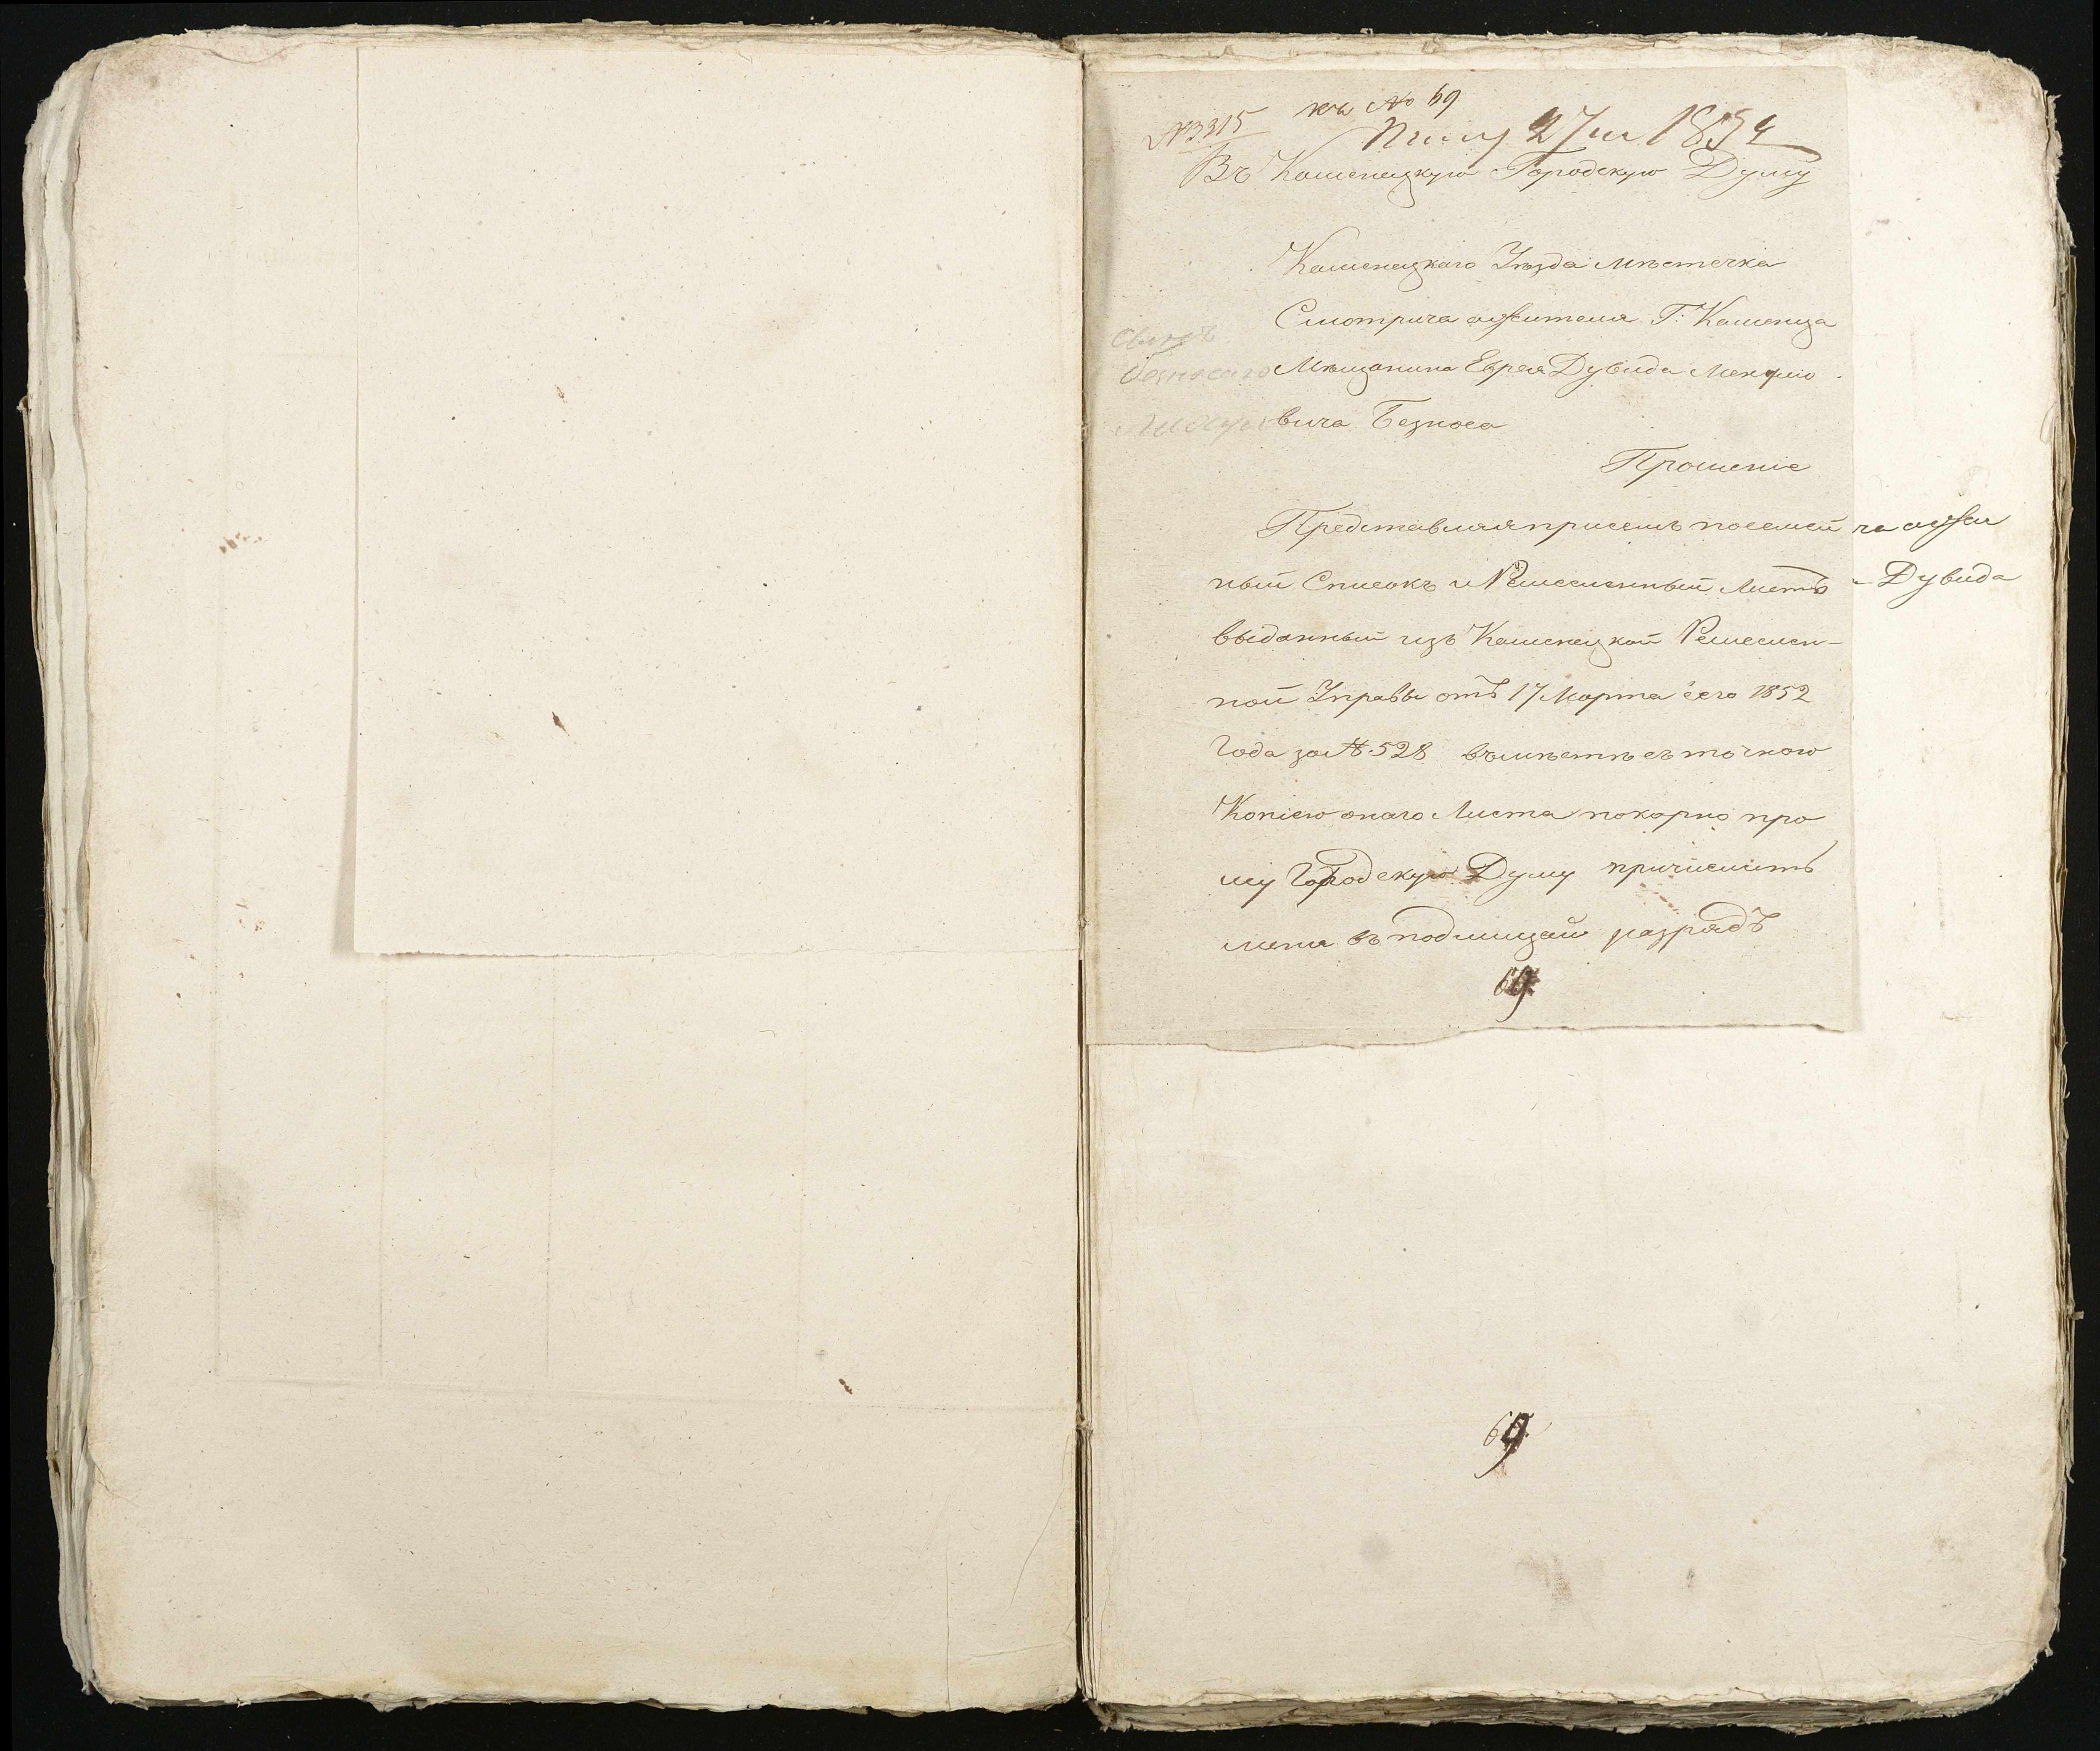 къ № 69
№ 3315
27 1854
Въ Каменецкую Городскую Думу
Каменецкаго Уѣзда мѣстечка
Смотрича жителя Г: Каменца
Мѣщанина Еврея Дувида
вича Безноса
Прошеніе
Представляя присемъ посемей
ный Списокъ и Ремесленный Листъ
- Дувида
выданный изъ Каменецкой Ремеслен-
ной Управы отъ 17 Марта сего 1852
Года за № 528 въмѣстѣ съ точною
Копіею онаго Листа покорно про
шу Городскую Думу причислить
меня въ подлежащій разрядъ
69
69